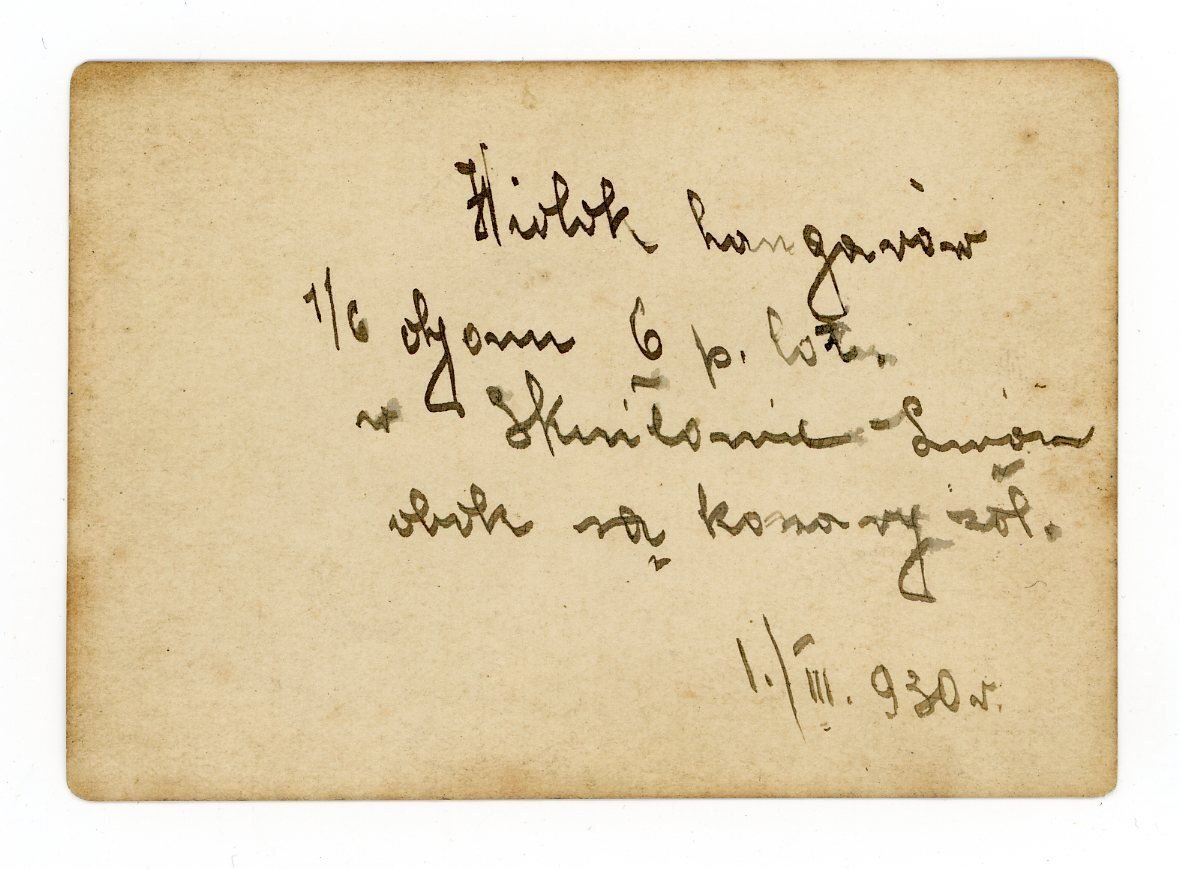 Widok hangarów
1/6 dyonu 6 p. lotn.
w Skniłowie Lwów
obok są koszary żoł.
1./III. 930 r.